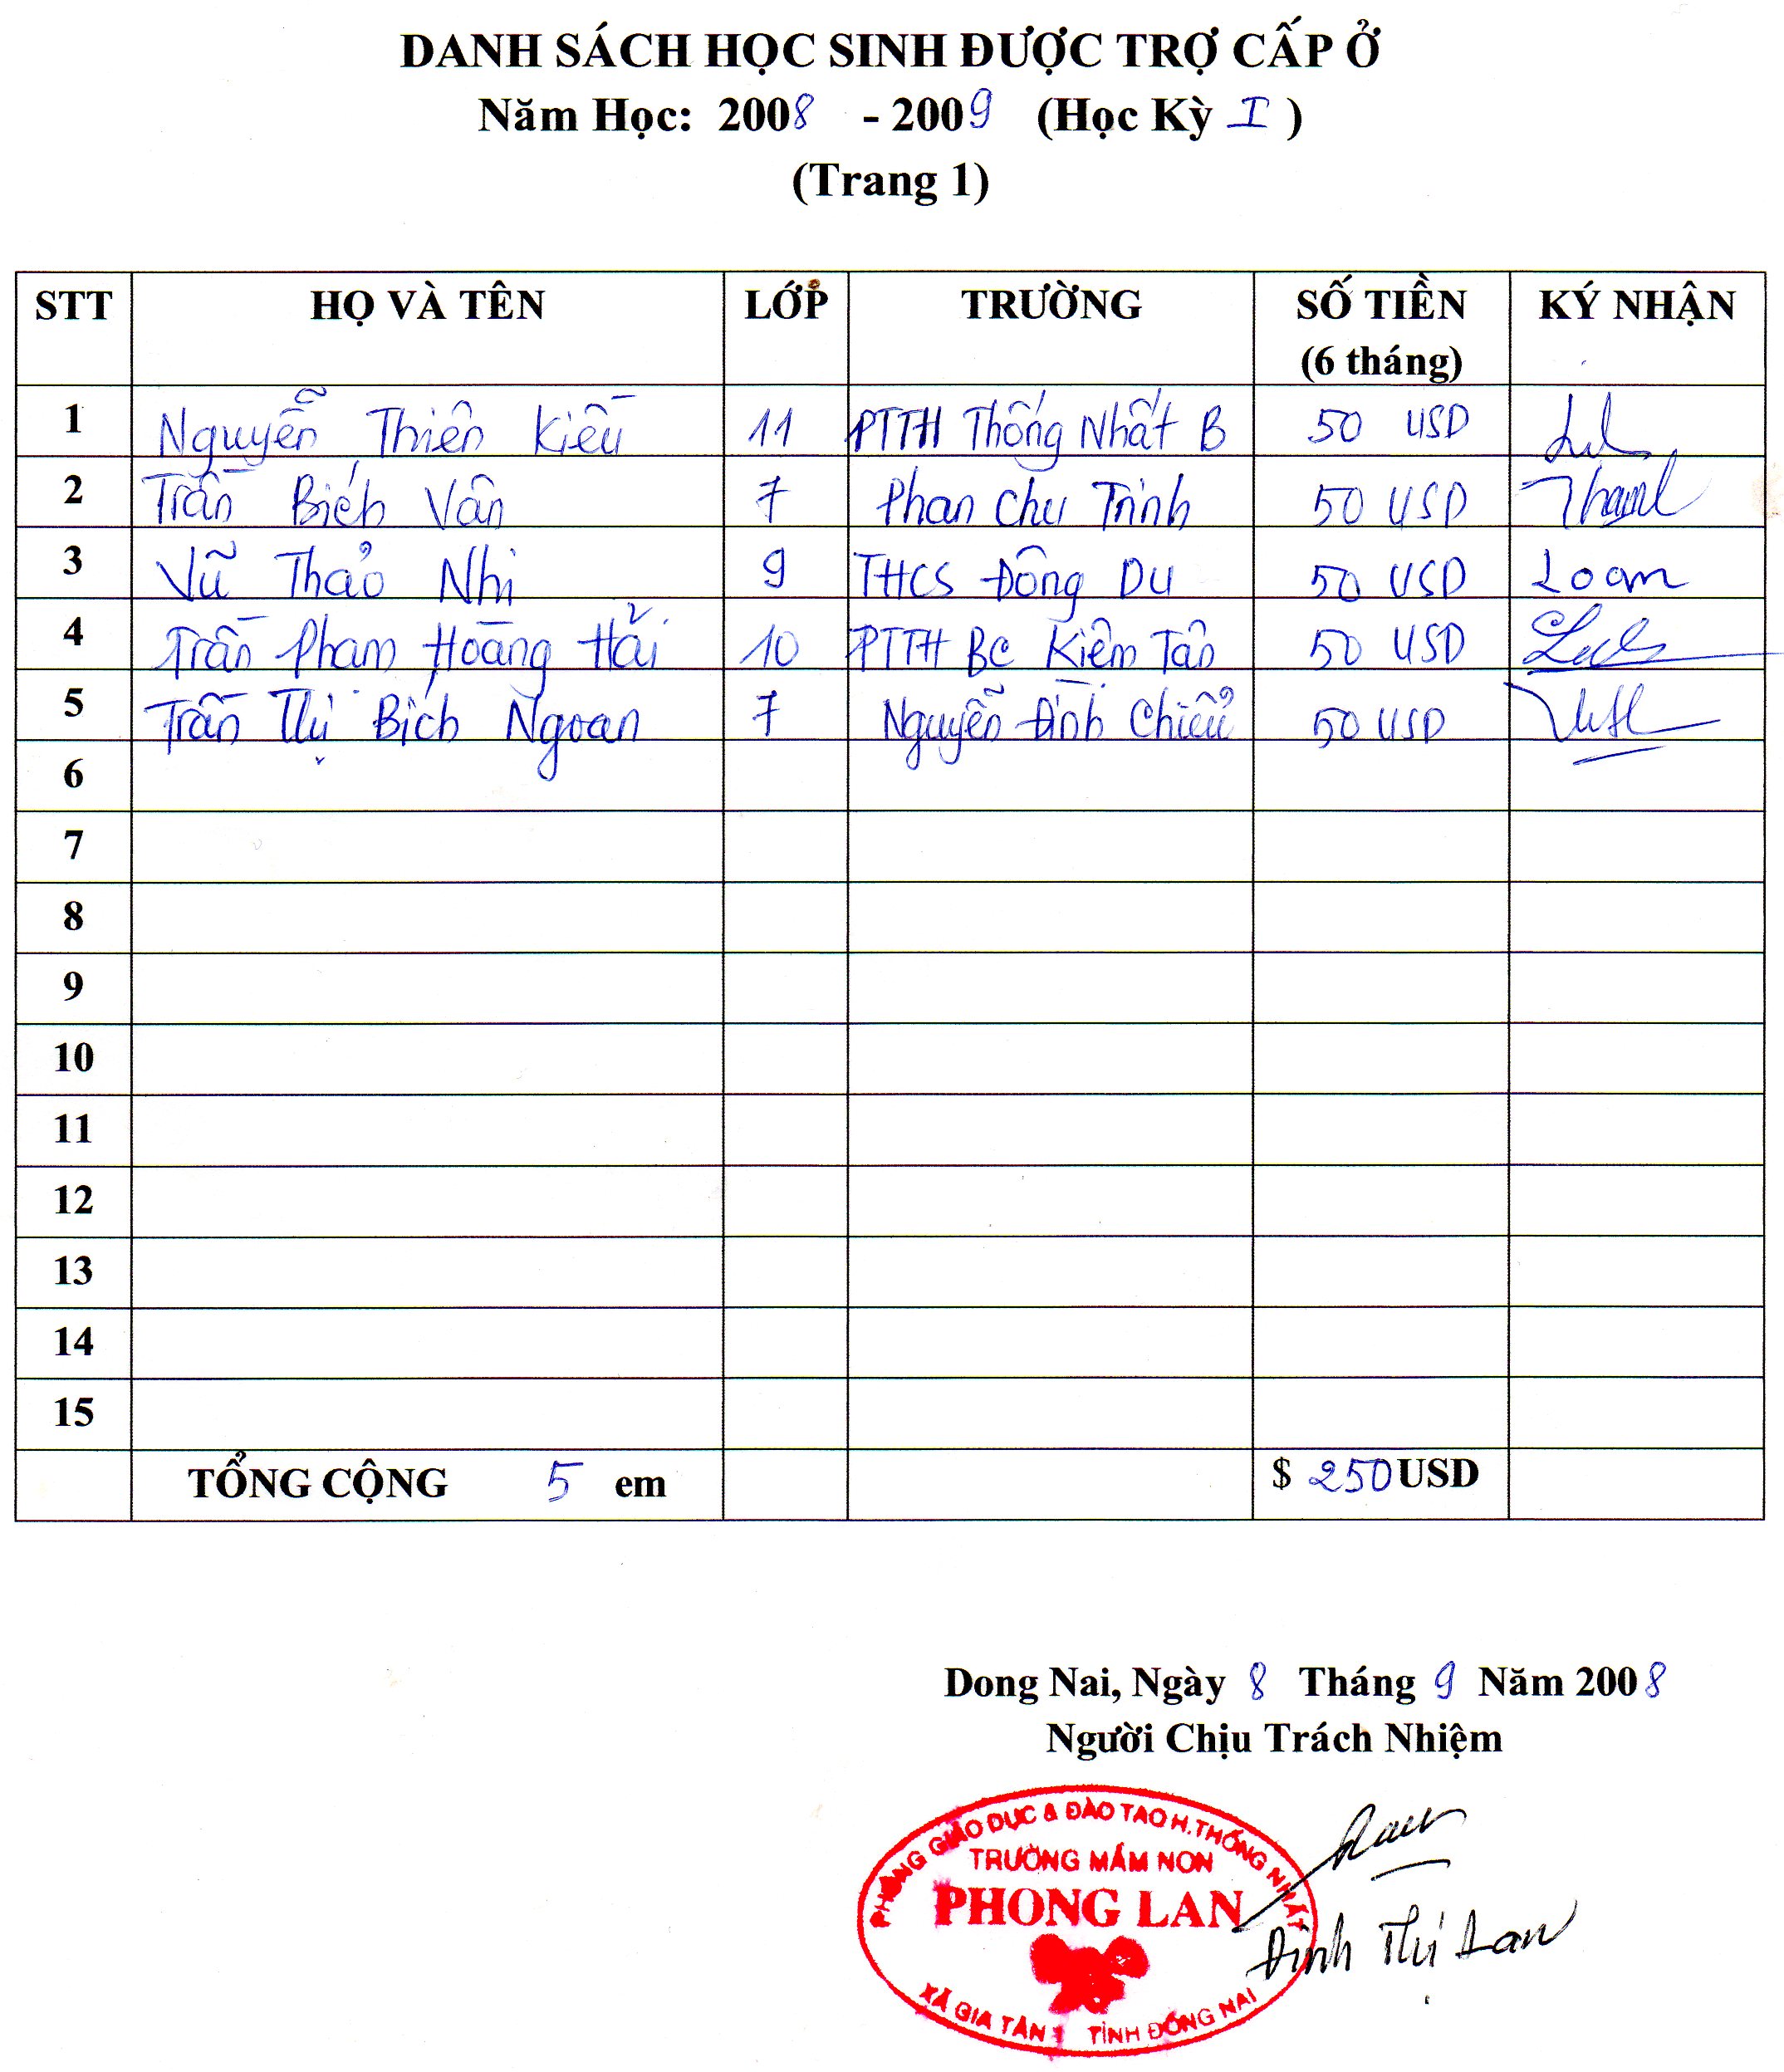 DANH SÁCH HỌC SINH ĐƯỢC TRỢ CẤP Ở
Năm Học: 2008 - 2009 (Học Kỳ I )
(Trang 1)
STT HỌ VÀ TÊN LỚP TRƯỜNG SỐ TIỀN (6 tháng) KÝ NHẬN
1 Nguyễn Thiên Kiều 11 PTTH Thống Nhất B 50 USD
2 Trần Bích Vân 7 Phan Chu Trinh 50 USD
3 Vũ Thảo Nhi 9 THCS Đông Du 50 USD Loan
4 Trần Phạm Hoàng Hải 10 PTTH BC Kiệm Tân 50 USD
5 Trần Thị Bích Ngoan 7 Nguyễn Đình Chiểu 50 USD
6
7
8
9
10
11
12
13
14
15
TỔNG CỘNG 5 em $ 250 USD
Dong Nai, Ngày 8 Tháng 9 Năm 2008
Người Chịu Trách Nhiệm
PHÒNG GIÁO DỤC & ĐÀO TẠO H.THỐNG NHẤT
TRƯỜNG MẦM NON
PHONG LAN
XÃ GIA TÂN 1 TỈNH ĐỒNG NAI
Đinh Thị Lan